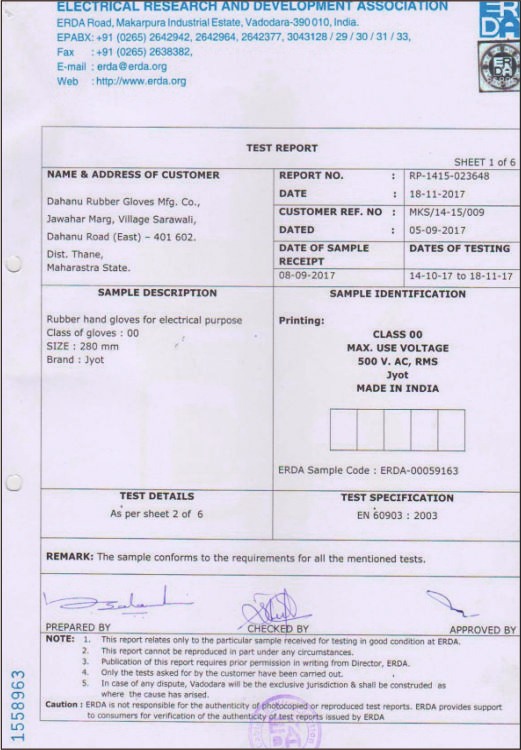 ELECTRICAL RESEARCH AND DEVELOPMENT ASSOCIATION
ERDA Road, Makarpura Industrial Estate, Vadodara-390 010, India.
EPABX: +91 (0265) 2642942, 2642964, 2642377, 3043128 / 29 / 30 / 31 / 33,
Fax : +91 (0265) 2638382,
E-mail : erda@erda.org
Web : http://www.erda.org
ERDA
TEST REPORT
SHEET 1 of 6
NAME & ADDRESS OF CUSTOMER
Dahanu Rubber Gloves Mfg. Co.,
Jawahar Marg, Village Sarawali,
Dahanu Road (East) – 401 602.
Dist. Thane,
Maharastra State.
REPORT NO. : RP-1415-023648
DATE : 18-11-2017
CUSTOMER REF. NO : MKS/14-15/009
DATED : 05-09-2017
DATE OF SAMPLE RECEIPT
DATES OF TESTING
08-09-2017
14-10-17 to 18-11-17
SAMPLE DESCRIPTION
Rubber hand gloves for electrical purpose
Class of gloves : 00
SIZE : 280 mm
Brand : Jyot
SAMPLE IDENTIFICATION
Printing:
CLASS 00
MAX. USE VOLTAGE
500 V. AC, RMS
Jyot
MADE IN INDIA
ERDA Sample Code : ERDA-00059163
TEST DETAILS
As per sheet 2 of 6
TEST SPECIFICATION
EN 60903 : 2003
REMARK: The sample conforms to the requirements for all the mentioned tests.
PREPARED BY
CHECKED BY
APPROVED BY
NOTE: 1. This report relates only to the particular sample received for testing in good condition at ERDA.
2. This report cannot be reproduced in part under any circumstances.
3. Publication of this report requires prior permission in writing from Director, ERDA.
4. Only the tests asked for by the customer have been carried out.
5. In case of any dispute, Vadodara will be the exclusive jurisdiction & shall be construed as
where the cause has arised.
Caution : ERDA is not responsible for the authenticity of photocopied or reproduced test reports. ERDA provides support
to consumers for verification of the authenticity of test reports issued by ERDA
1558963